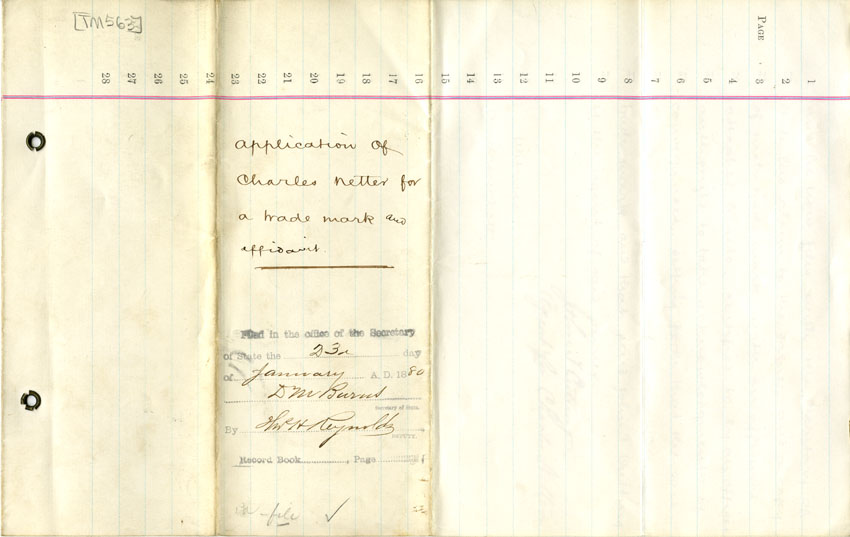 [TM563]
PAGE
28 27 26 25 24 23 22 21 20 19 18 17 16 15 14 13 12 11 10 9 8 7 6 5 4 3 2 1
Application of
Charles Netter for
a trade mark and
affidavit.
Filed in the office of the Secretary
of State the 23d day
of January A. D. 1880
D M Burns
Secretary of State.
By Thos H Reynolds
DEPUTY.
Record Book , Page
file ✓